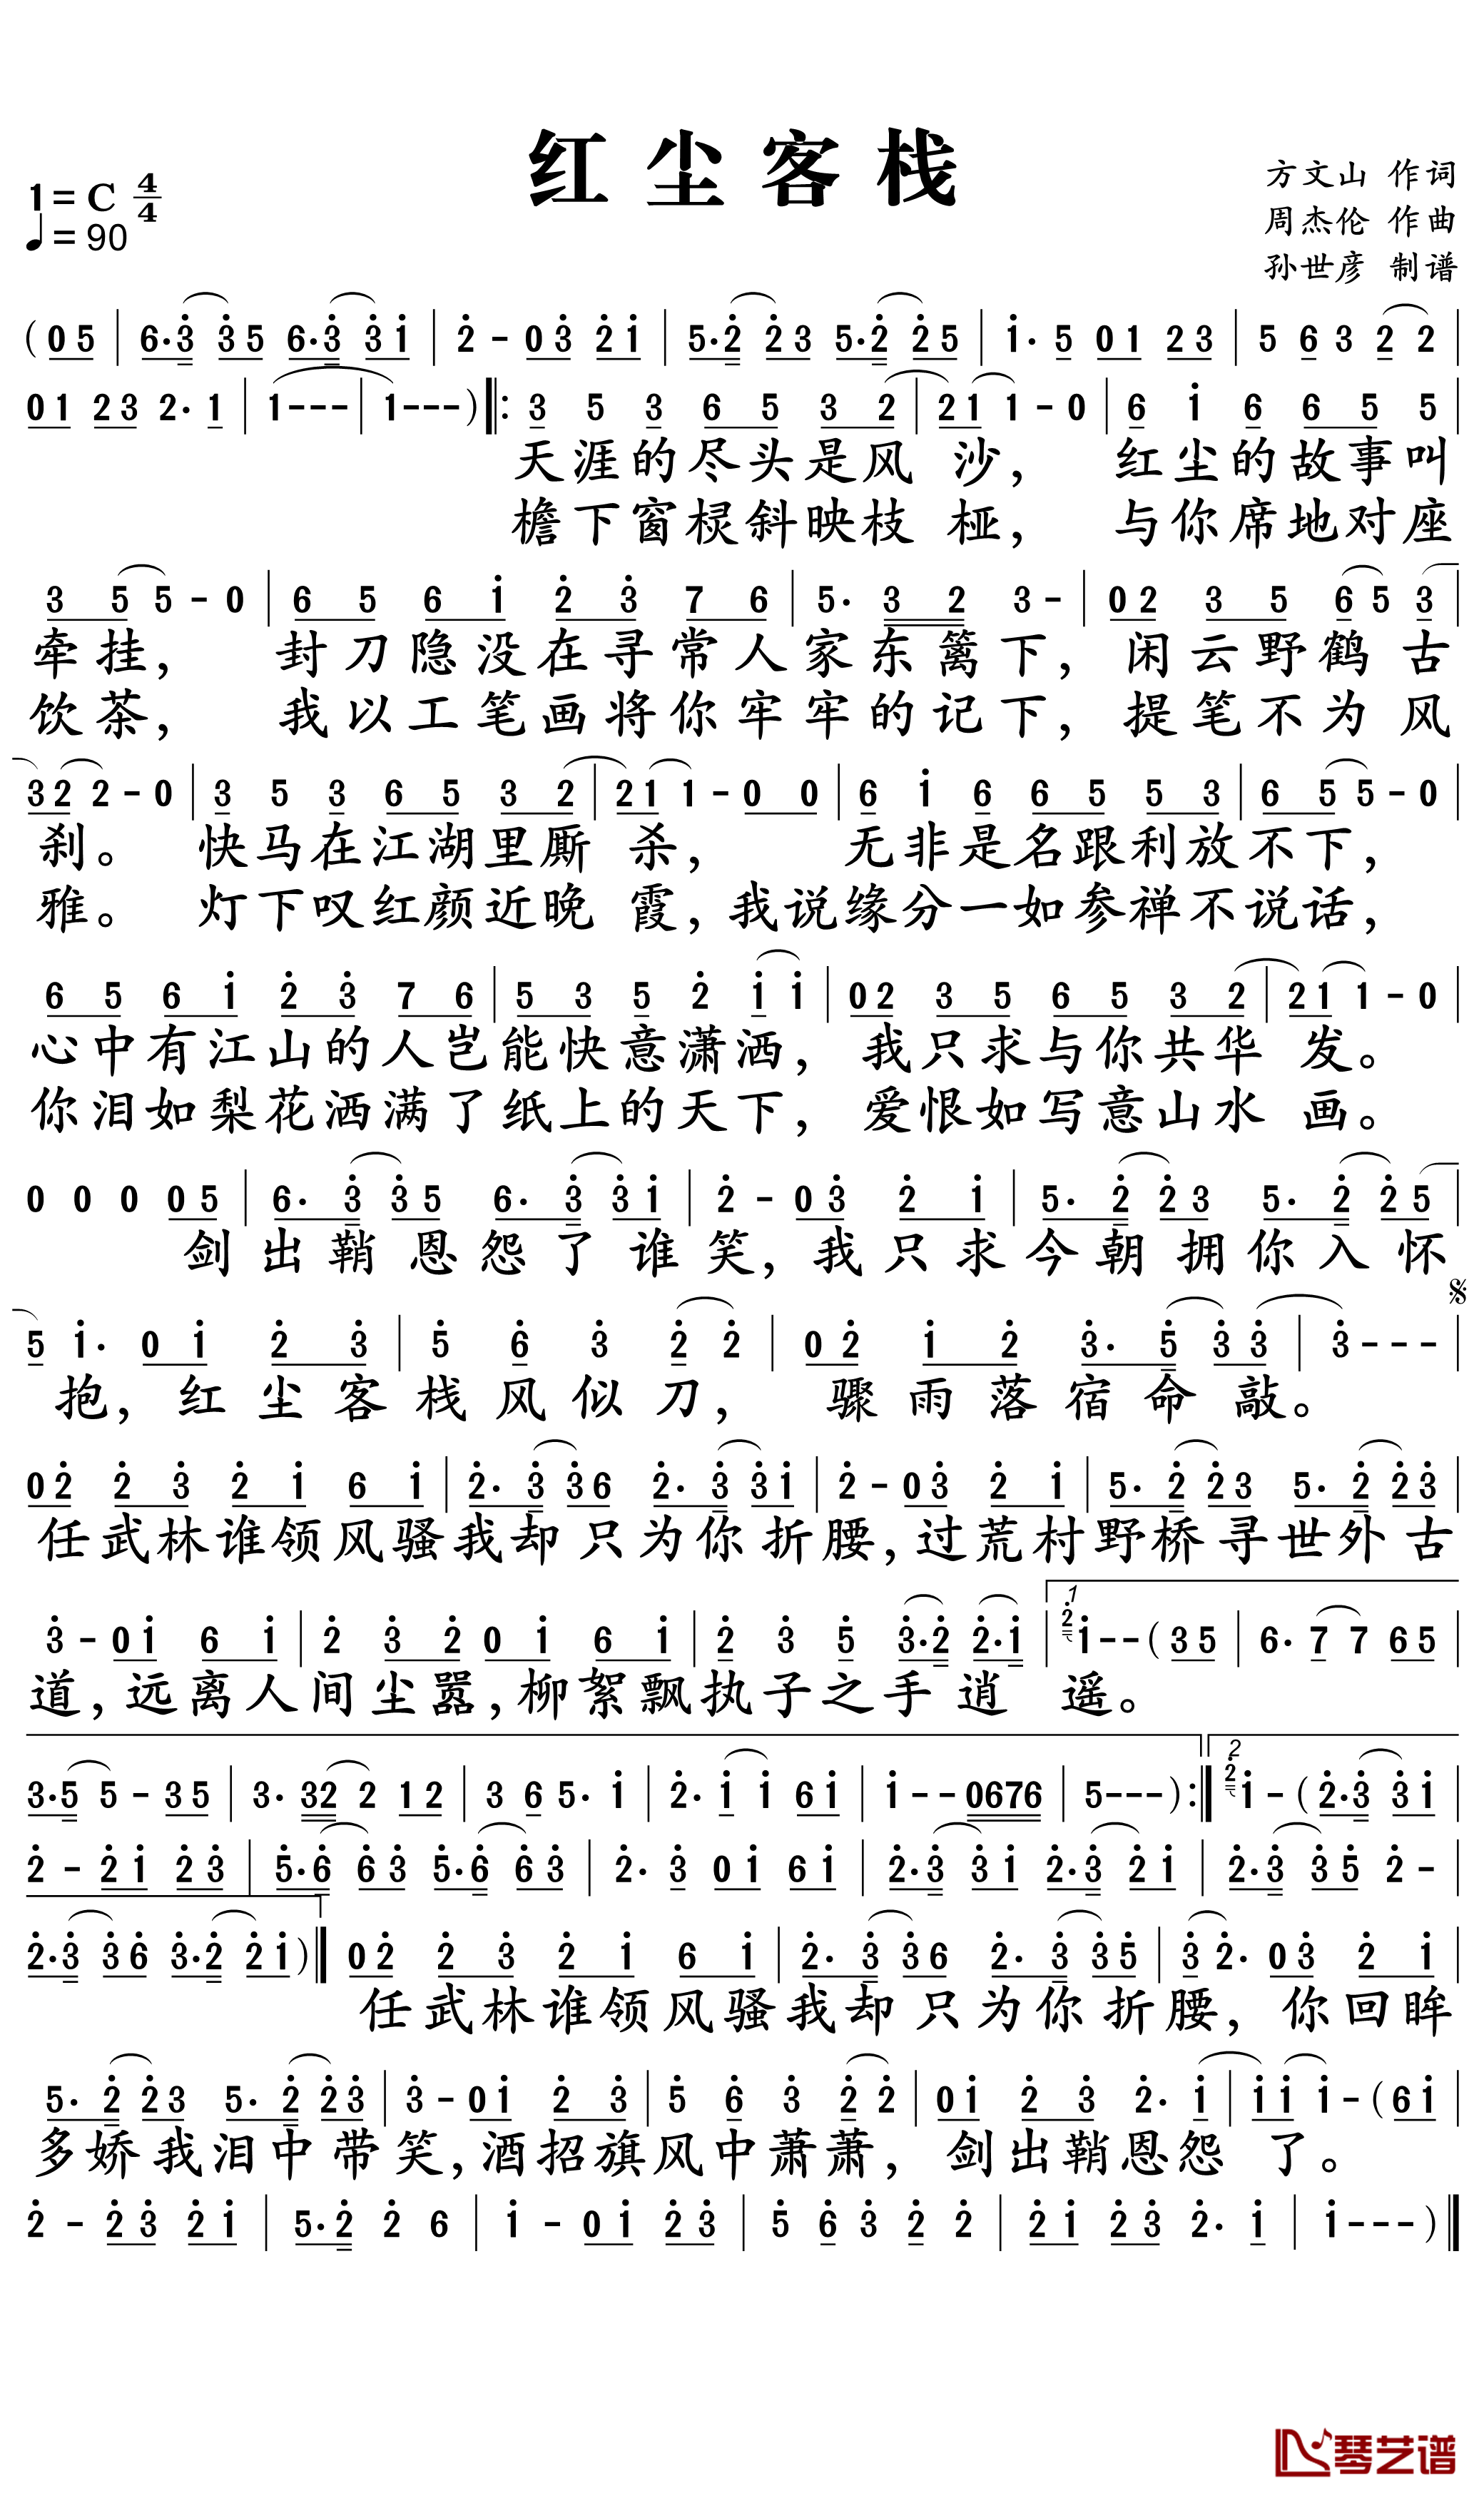 红尘客栈
1=C 4/4
♩=90
方文山 作词
周杰伦 作曲
孙世彦 制谱
(05|6·3 35 6·3 31|2-03 21|5·2 23 5·2 25|1·5 01 23|5 6 3 2 2|
01 23 2·1|1---|1---)‖:3 5 3 6 5 3 2|21 1-0|6 1 6 6 5 5|
天涯的尽头是风 沙， 红尘的故事叫
檐下窗棂斜映枝 桠， 与你席地对座
3 5 5-0|6 5 6 1 2 3 7 6|5· 3 2 3-|02 3 5 6 5 3|
牵挂， 封刀隐没在寻常人家东篱下，闲云野鹤古
饮茶， 我以工笔画将你牢牢的记下，提笔不为风
32 2-0|3 5 3 6 5 3 2|21 1-0 0|6 1 6 6 5 5 3|6 5 5-0|
刹。 快马在江湖里厮 杀， 无非是名跟利放不下，
雅。 灯下叹红颜近晚 霞，我说缘分一如参禅不说话，
6 5 6 1 2 3 7 6|5 3 5 2 1 1|02 3 5 6 5 3 2|21 1-0|
心中有江山的人岂能快意潇洒， 我只求与你共华 发。
你泪如梨花洒满了纸上的天下， 爱恨如写意山水 画。
0 0 0 05|6· 3 35 6· 3 31|2-03 2 1|5· 2 23 5· 2 25|
剑出鞘恩怨了谁笑，我只求今朝拥你入怀
5 1· 0 1 2 3|5 6 3 2 2|02 1 2 3· 5 33|3---|
抱，红尘客栈风似刀， 骤雨落宿命敲。
02 2 3 2 1 6 1|2· 3 36 2· 3 31|2-03 2 1|5· 2 23 5· 2 23|
任武林谁领风骚我却只为你折腰，过荒村野桥寻世外古
3-01 6 1|2 3 2 0 1 6 1|2 3 5 3·2 2·1|1 2 1--(35|6·7 7 65|
道，远离人间尘嚣，柳絮飘执子之手逍 遥。
3·5 5-35|3· 32 2 12|3 6 5· 1|2·1 1 61|1--0676|5---):‖2 2 1-(2·3 31|
2-21 23|5·6 63 5·6 63|2·3 01 61|2·3 31 2·3 21|2·3 35 2-|
2·3 36 3·2 21)‖02 2 3 2 1 6 1|2· 3 36 2· 3 35|3 2· 03 2 1|
任武林谁领风骚我却只为你折腰， 你回眸
5· 2 23 5· 2 23|3-01 2 3|5 6 3 2 2|01 2 3 2· 1|11 1-(61|
多娇我泪中带笑，酒招旗风中萧萧， 剑出鞘恩怨 了。
2-23 21|5·2 2 6|1-01 23|5 6 3 2 2|21 23 2· 1|1---)‖
琴艺谱